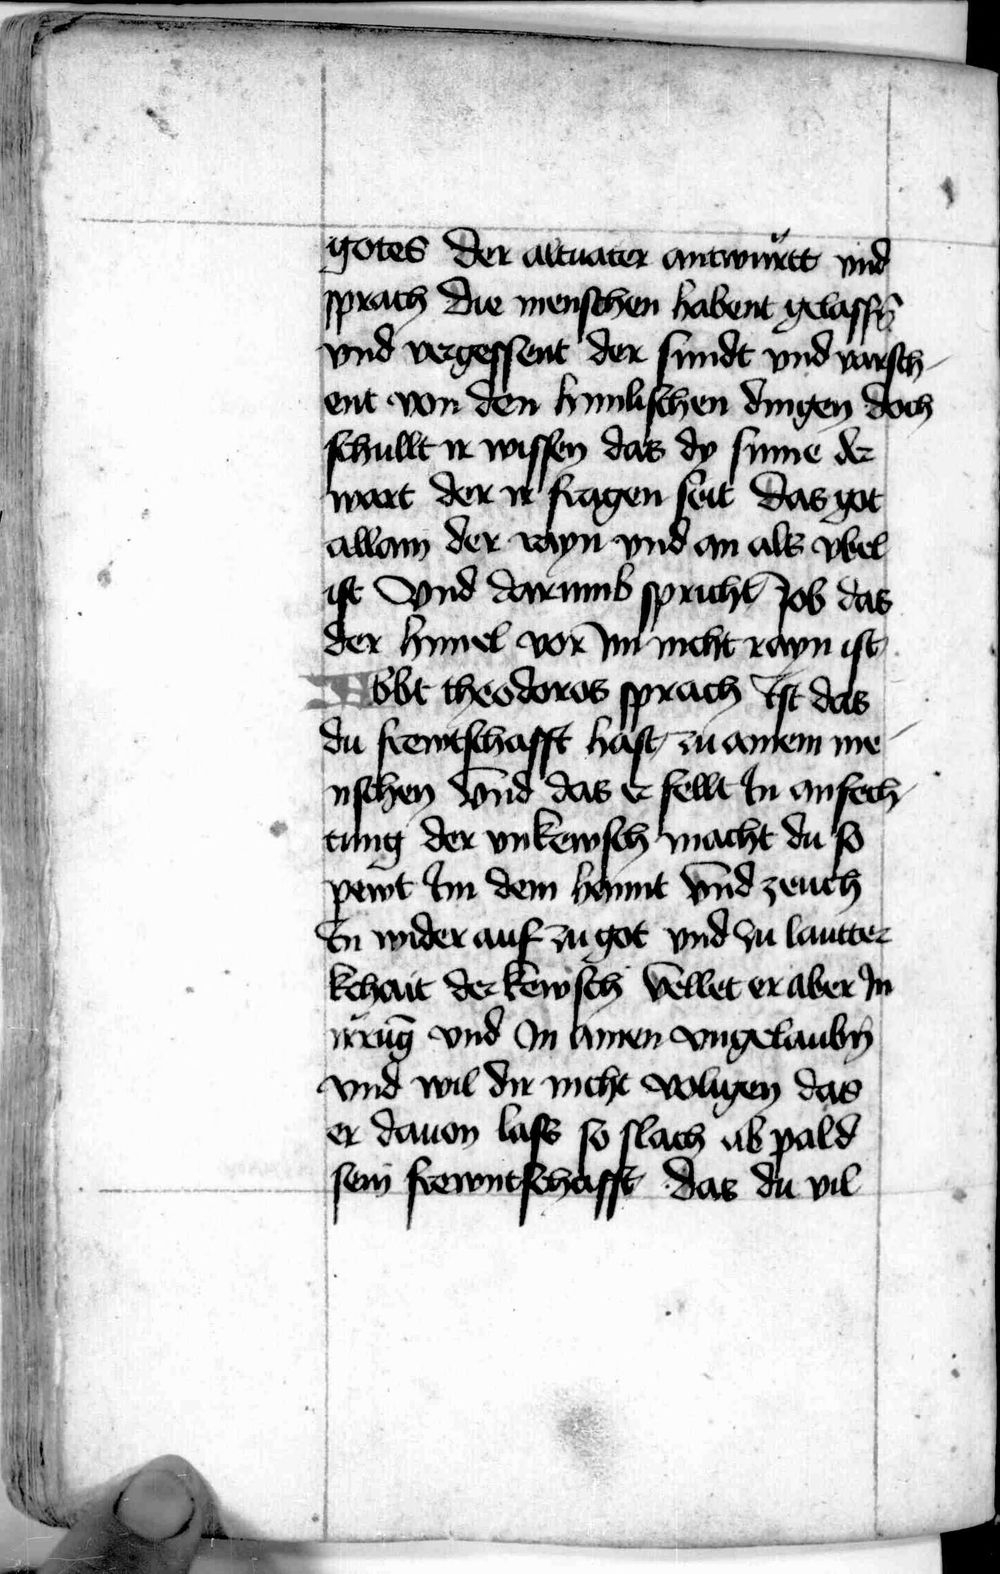 gotes Der altuater antwůrtt vnd
sprach Die menschen habent gelassn̄
vnd vergessent der sundt vnd varsch-
ent von den himlischen dingen doch
schullt ir wissen das dy sinne der
wart der ir fragen seit Das got
allain der rayn vnd an als vbel
ist Vnd darumb spricht Job das
der himel vor im nicht rayn ist
Abbt theodoros sprach Ist das
du frewtschafft hast zu ainem me-
nschen Vnd das er fellt In anfech-
tung der vnkewsch macht du so
pewt Im dem hennt Vnd zeuch
In wider auf zu got vnd zu lautter
kchait der kewsch Vellet er aber In
irrūg vnd In ainen vngelaubn̄
vnd wil dir nicht voligen das
er dauon lass so slach ab pald
sein frewntschafft das du vil